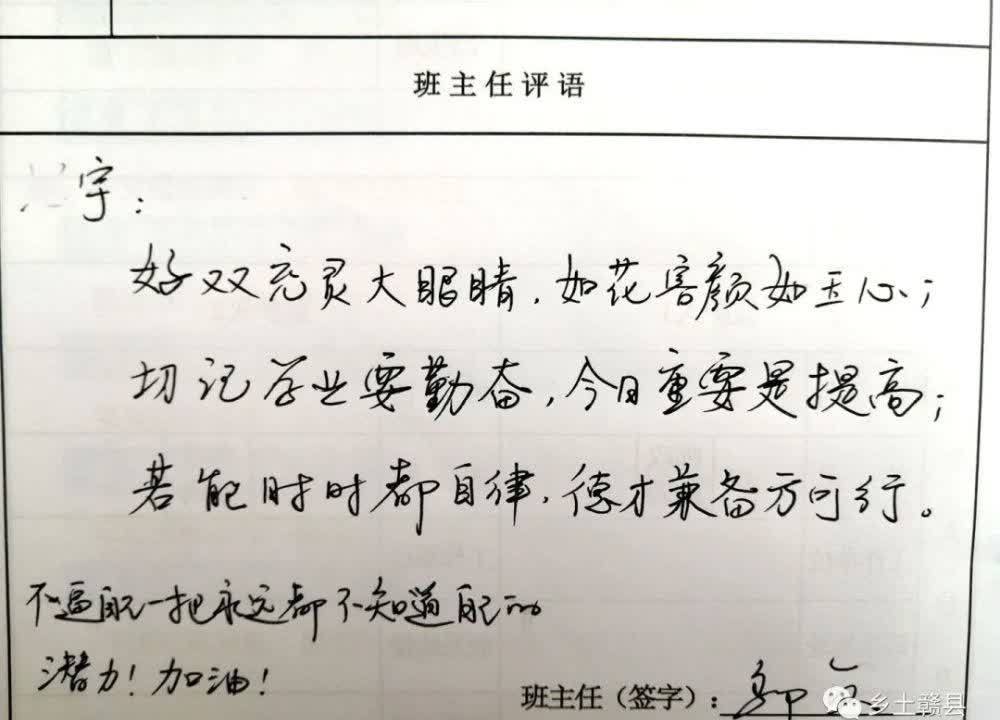 班主任评语
宇：
好双充灵大眼睛，如花容颜如玉心；
切记学业要勤奋，今日重要是提高；
若能时时都自律，德才兼备方可行。
不逼自己一把永远都不知道自己的
潜力！加油！
班主任（签字）：
乡土赣县